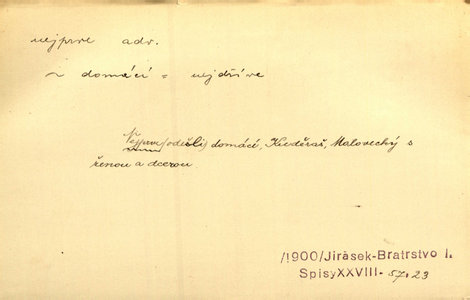 nejprve adv.
~ domácí = nejdříve
Nejprve (odešli) domácí, Kuděraš, Malovecký s
ženou a dcerou
/1900/Jirásek-Bratrstvo I.
Spisy XXVIII- 57.23